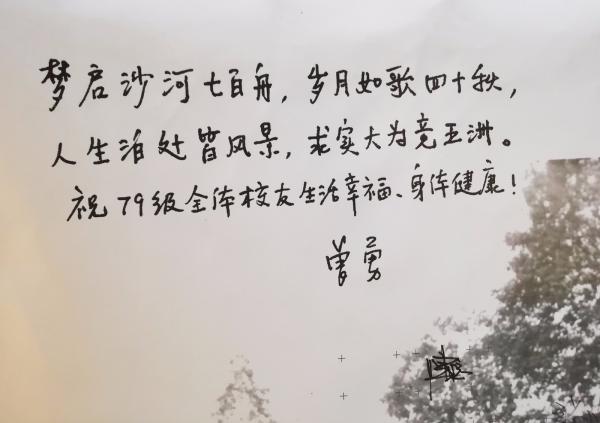 梦启沙河七百舟，岁月如歌四十秋，
人生泊处皆风景，求实大为竞五洲。
祝79级全体校友生活幸福、身体健康！
曾勇